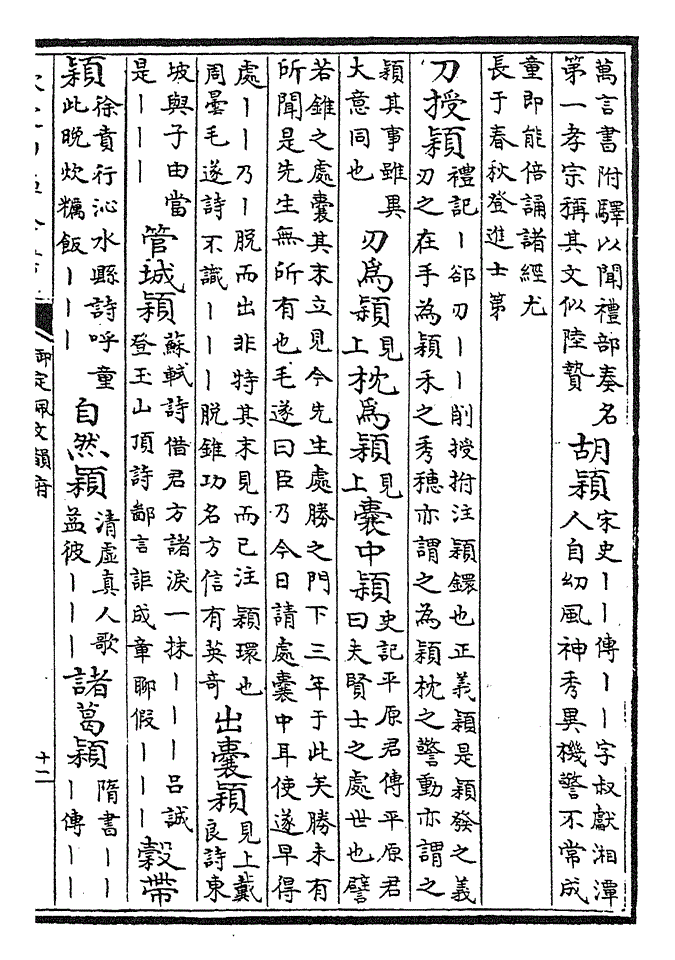 萬言書附驛以聞禮部奏名
第一孝宗稱其文似陸贄
胡穎
宋史丨丨傳丨丨字叔獻湘潭
人自幼風神秀異機警不常成
童即能倍誦諸經尤
長于春秋登進士第
刀授穎
禮記丨郤刃丨丨削授拊注穎鐶也正義穎是穎發之義
刃之在手為穎禾之秀穗亦謂之為穎枕之警動亦謂之
穎其事雖異
大意同也
刃為穎
見
上
枕為穎
見
上
囊中穎
史記平原君傳平原君
曰夫賢士之處世也譬
若錐之處囊其末立見今先生處勝之門下三年于此矣勝未有
所聞是先生無所有也毛遂曰臣乃今日請處囊中耳使遂早得
處丨丨乃丨脫而出非特其末見而已注穎環也
周曇毛遂詩不識丨丨丨脫錐功名方信有英奇
出囊穎
見上戴
良詩東
坡與子由當
是丨丨丨
管城穎
蘇軾詩借君方諸淚一抹丨丨丨呂誠
登玉山頂詩鄙言詎成章聊假丨丨丨
穀帶
穎
徐賁行沁水縣詩呼童
此晚炊糲飯丨丨丨
自然穎
清虛真人歌
益彼丨丨丨
諸葛穎
隋書丨丨
丨傳丨丨
御定佩文韻府
十二